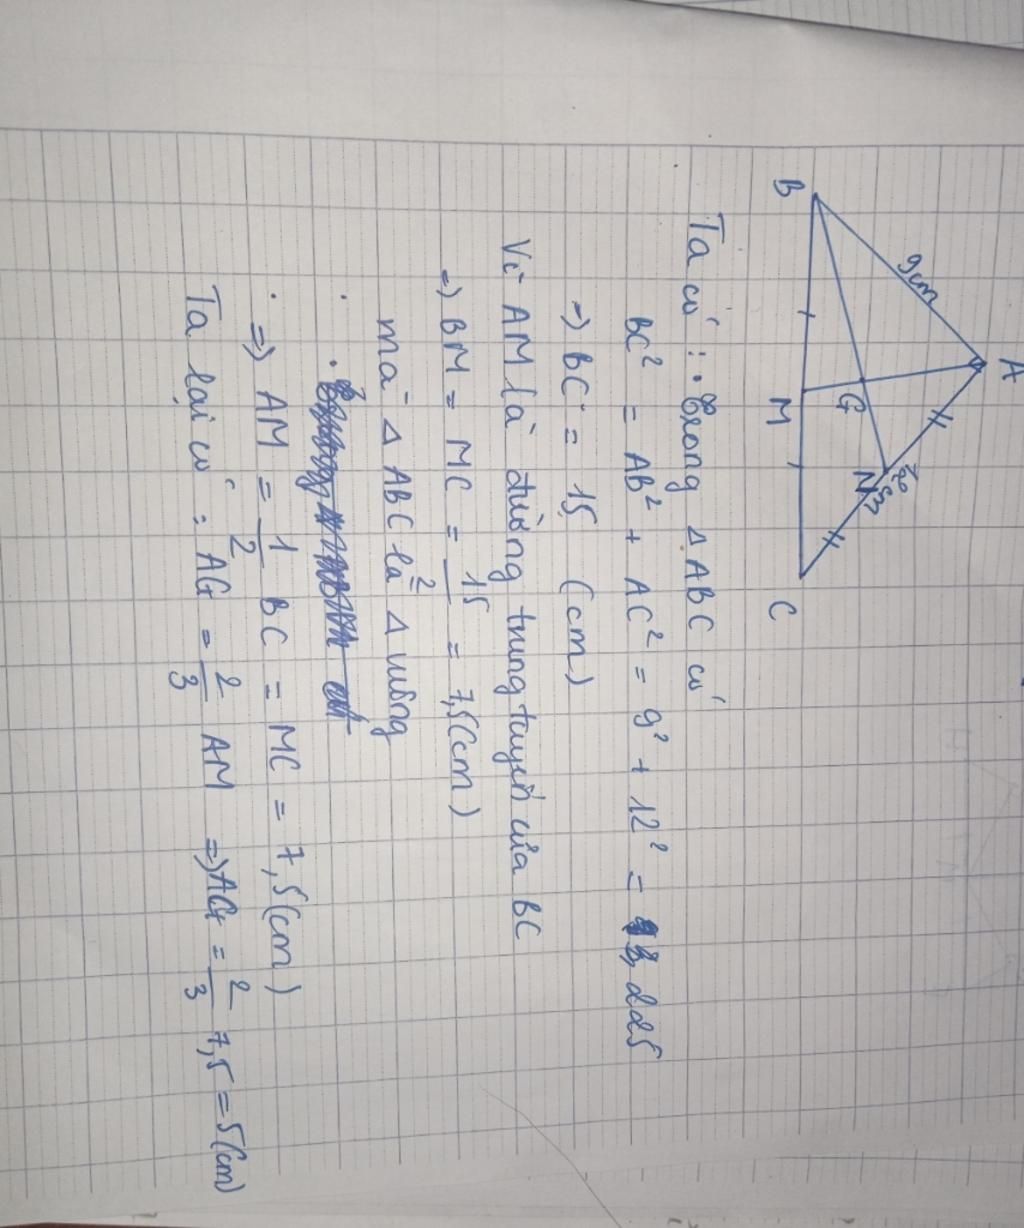 A
9cm
12cm
B
G
N
M
C
Ta có : . Trong Δ ABC có
BC² = AB² + AC² = 9² + 12² = 225
=> BC = 15 (cm)
Vì AM là đường trung tuyến của BC
=> BM = MC = 15/2 = 7,5(cm)
mà Δ ABC là Δ vuông
=> AM = 1/2 BC = MC = 7,5(cm)
Ta lại có : AG = 2/3 AM => AG = 2/3 7,5 = 5(cm)